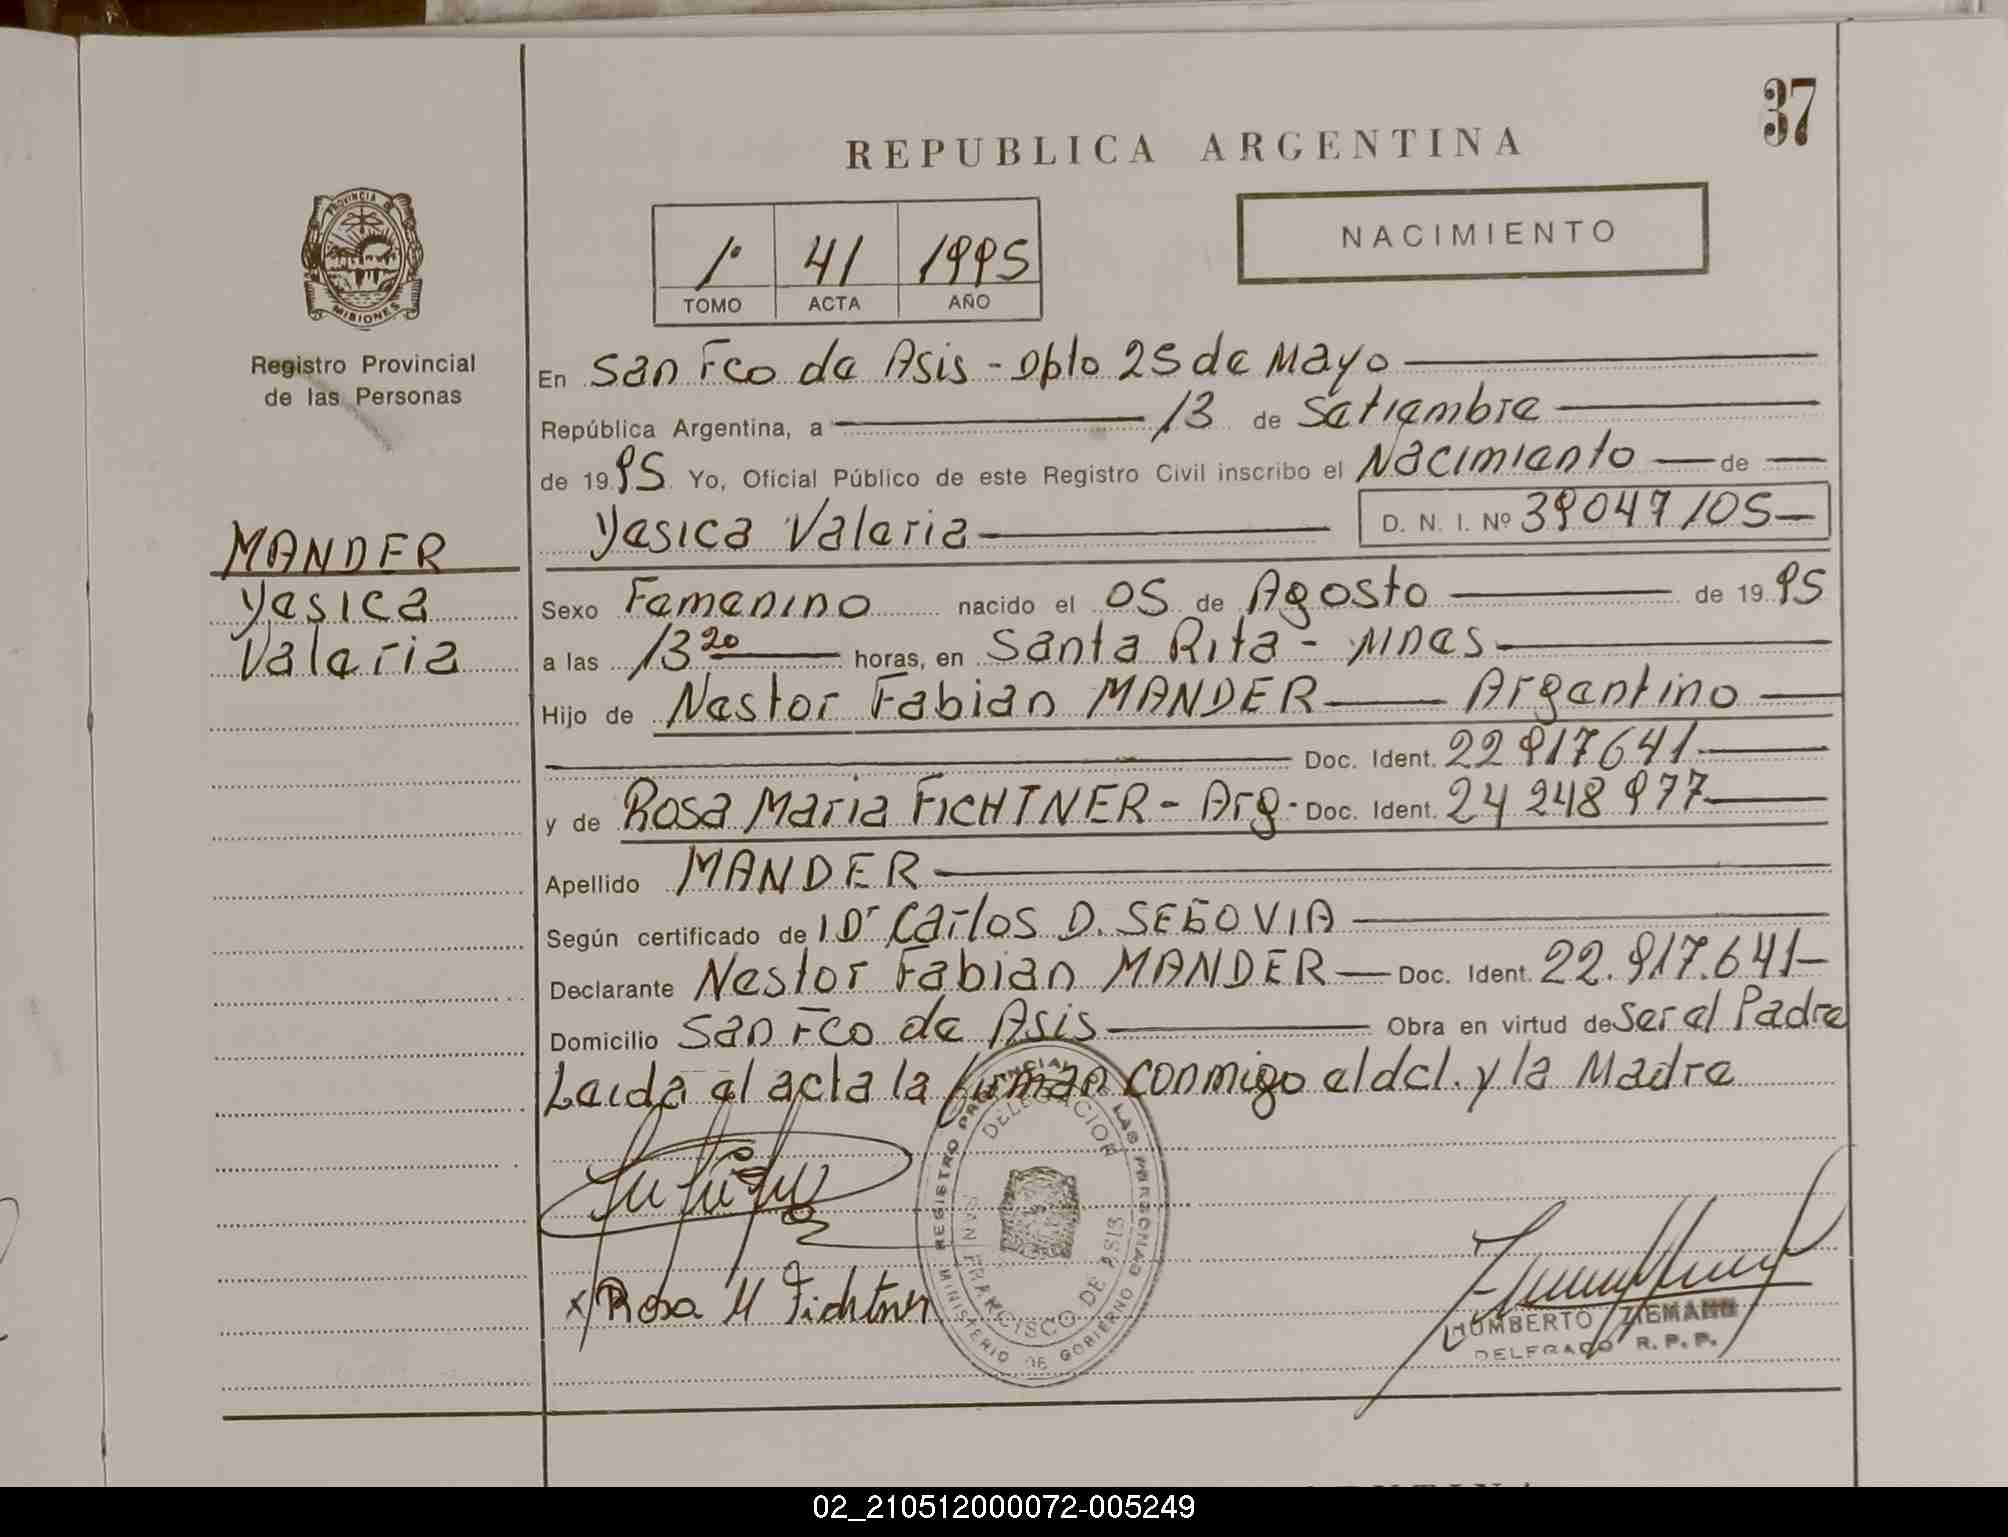 37
REPUBLICA ARGENTINA
PROVINCIA DE
MISIONES
Registro Provincial
de las Personas
1º 41 1995
TOMO ACTA AÑO
NACIMIENTO
En San Fco de Asis - Dpto 25 de Mayo
República Argentina, a 13 de Setiembre
de 1995 Yo, Oficial Público de este Registro Civil inscribo el Nacimiento de
Yesica Valeria D. N. I. Nº 39047105
MANDER
Yesica
Valeria
Sexo Femenino nacido el 05 de Agosto de 1995
a las 13 20 horas, en Santa Rita - Mnes
Hijo de Nestor Fabian MANDER Argentino
Doc. Ident. 22 917641
y de Rosa Maria FICHTNER - Arg. Doc. Ident. 24 248 977
Apellido MANDER
Según certificado de Dr Carlos D. SEGOVIA
Declarante Nestor Fabian MANDER Doc. Ident. 22.917.641
Domicilio San Fco de Asis Obra en virtud de Ser el Padre
Leida el acta la firman conmigo el dcl. y la Madre
REGISTRO PROVINCIAL DE LAS PERSONAS
DELEGACION
SAN FRANCISCO DE ASIS
MINISTERIO DE GOBIERNO
x Rosa M Fichtner
HUMBERTO ZIEMANN
DELEGADO R. P. P.
02_210512000072-005249